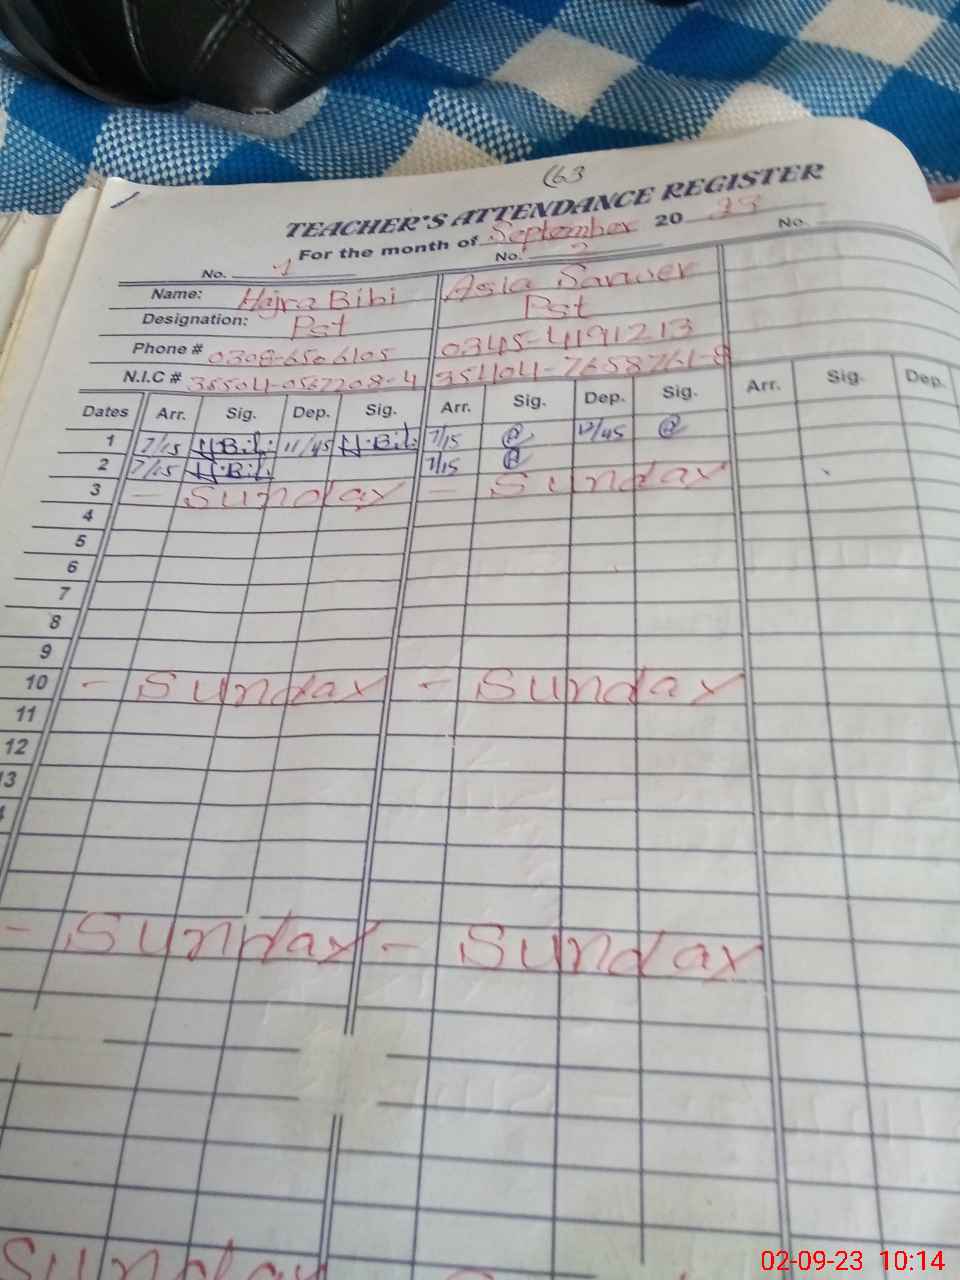 (63
TEACHER'S ATTENDANCE REGISTER
For the month of September 20 23
No. 1 No. 2 No.
Name: Hajra Bibi Asia Sarwer
Designation: Pst Pst
Phone # 0308-6506105 0345-4191213
N.I.C # 35504-0567208-4 35404-7658761-8
Dates Arr. Sig. Dep. Sig. Arr. Sig. Dep. Sig. Arr. Sig. Dep.
1 7/15 H.Bibi 11/45 H.Bibi 7/15 12/45
2 7/15 H.Bibi 7/15
3 - Sunday - Sunday
4
5
6
7
8
9
10 - Sunday - Sunday
11
12
13
- Sunday - Sunday
Sunday
02-09-23 10:14